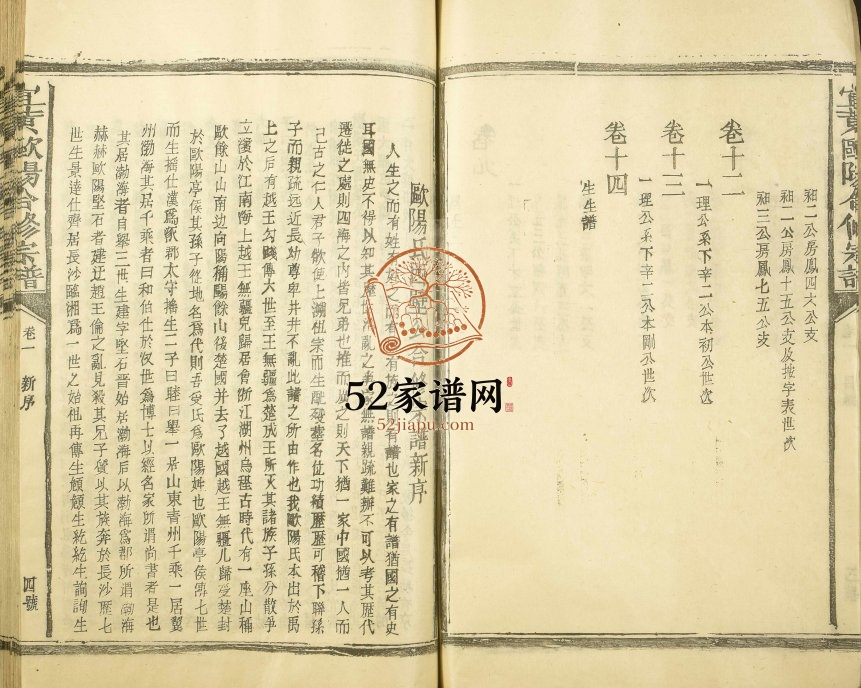 宜黃歐陽合修宗譜
和二公房鳳四六公支
和一公房鳳十五公支及按字表世次
和三公房鳳七五公支
卷十二
一理公系下辛二公本初公世次
卷十三
一理公系下辛二公本剛公世次
卷十四
生生譜
歐陽氏 合修 譜新序
人生之而有姓 有譜也家之有譜猶國之有史
耳國無史不得以知其歷代治亂之 無譜親疏難辦不可以考其歷代
遷徙之處則四海之內皆兄弟也推而 之則天下猶一家中國猶一人而
己古之仁人君子欲使上溯祖宗而生配 墓名位功績歷歷可稽下聯孫
子而親疏远近長幼尊卑井井不亂此譜之所由作也我歐陽氏本出於禹
上之后有越王勾踐傳六世至王無疆為楚成王所灭其諸族子孫分散爭
立濱於江南海上越王無疆兒歸居會浙江湖州烏程古時代有一座山稱
歐餘山山南边向陽稱歐陽餘山後楚國并去了越國越王無疆儿歸受楚封
於歐陽亭侯其孫子從地名為代則吾受氏為歐陽姓也歐陽亭侯傳七世
而生搖仕漢為 郡太守搖生二子曰睦曰舉一居山東青州千乘一居冀
州渤海其居千乘者曰和伯仕於漢世為博士以經名家所谓尚書者是也
其居渤海者自舉三世生建字堅石晋始居渤海后以渤海為郡所謂渤海
赫赫歐陽堅石者建迂趙王倫之亂見殺其兄子質以其族奔於長沙歷七
世生景達仕齊居長沙臨湘為一世之始祖再傳生頠頠生紇紇生詢詢生
宜黃歐陽合修宗譜
卷一
新序
四號
52家谱网
52jiapu.com